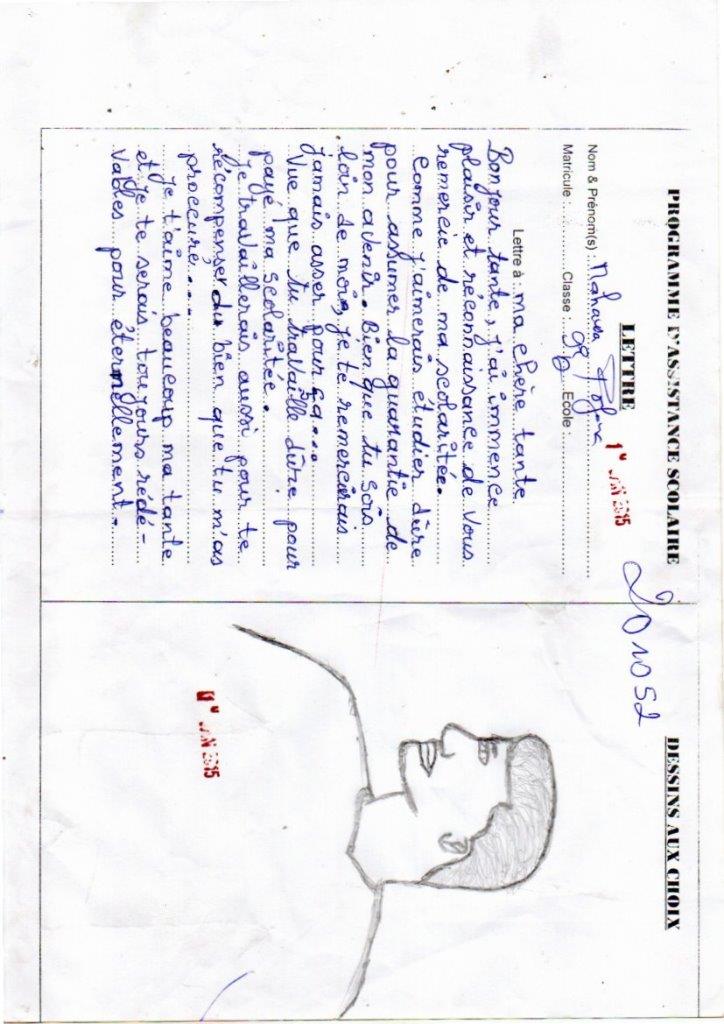 PROGRAMME D'ASSISTANCE SCOLAIRE
LETTRE
Nom & Prénom(s) :
Matricule : Classe : 9è Ecole :
Lettre à : ma chère tante
Bonjour tante, j'ai immence
plaisir et réconnaissance de vous
remercie de ma scolaritée.
Comme j'aimerais étudier dûre
pour assumer la quarantie de
mon avenir. Bien que tu sois
loin de moi, je te remercirais
jamais asser pour ça...
Vue que tu travaille dûre pour
payé ma scolaritée.
Je travaillerais aussi pour te
récompenser du bien que tu m'as
proccuré....
Je t'aime beaucoup ma tante
et je te serais toujours rédé-
vables pour éternellement.
201052
DESSINS AUX CHOIX